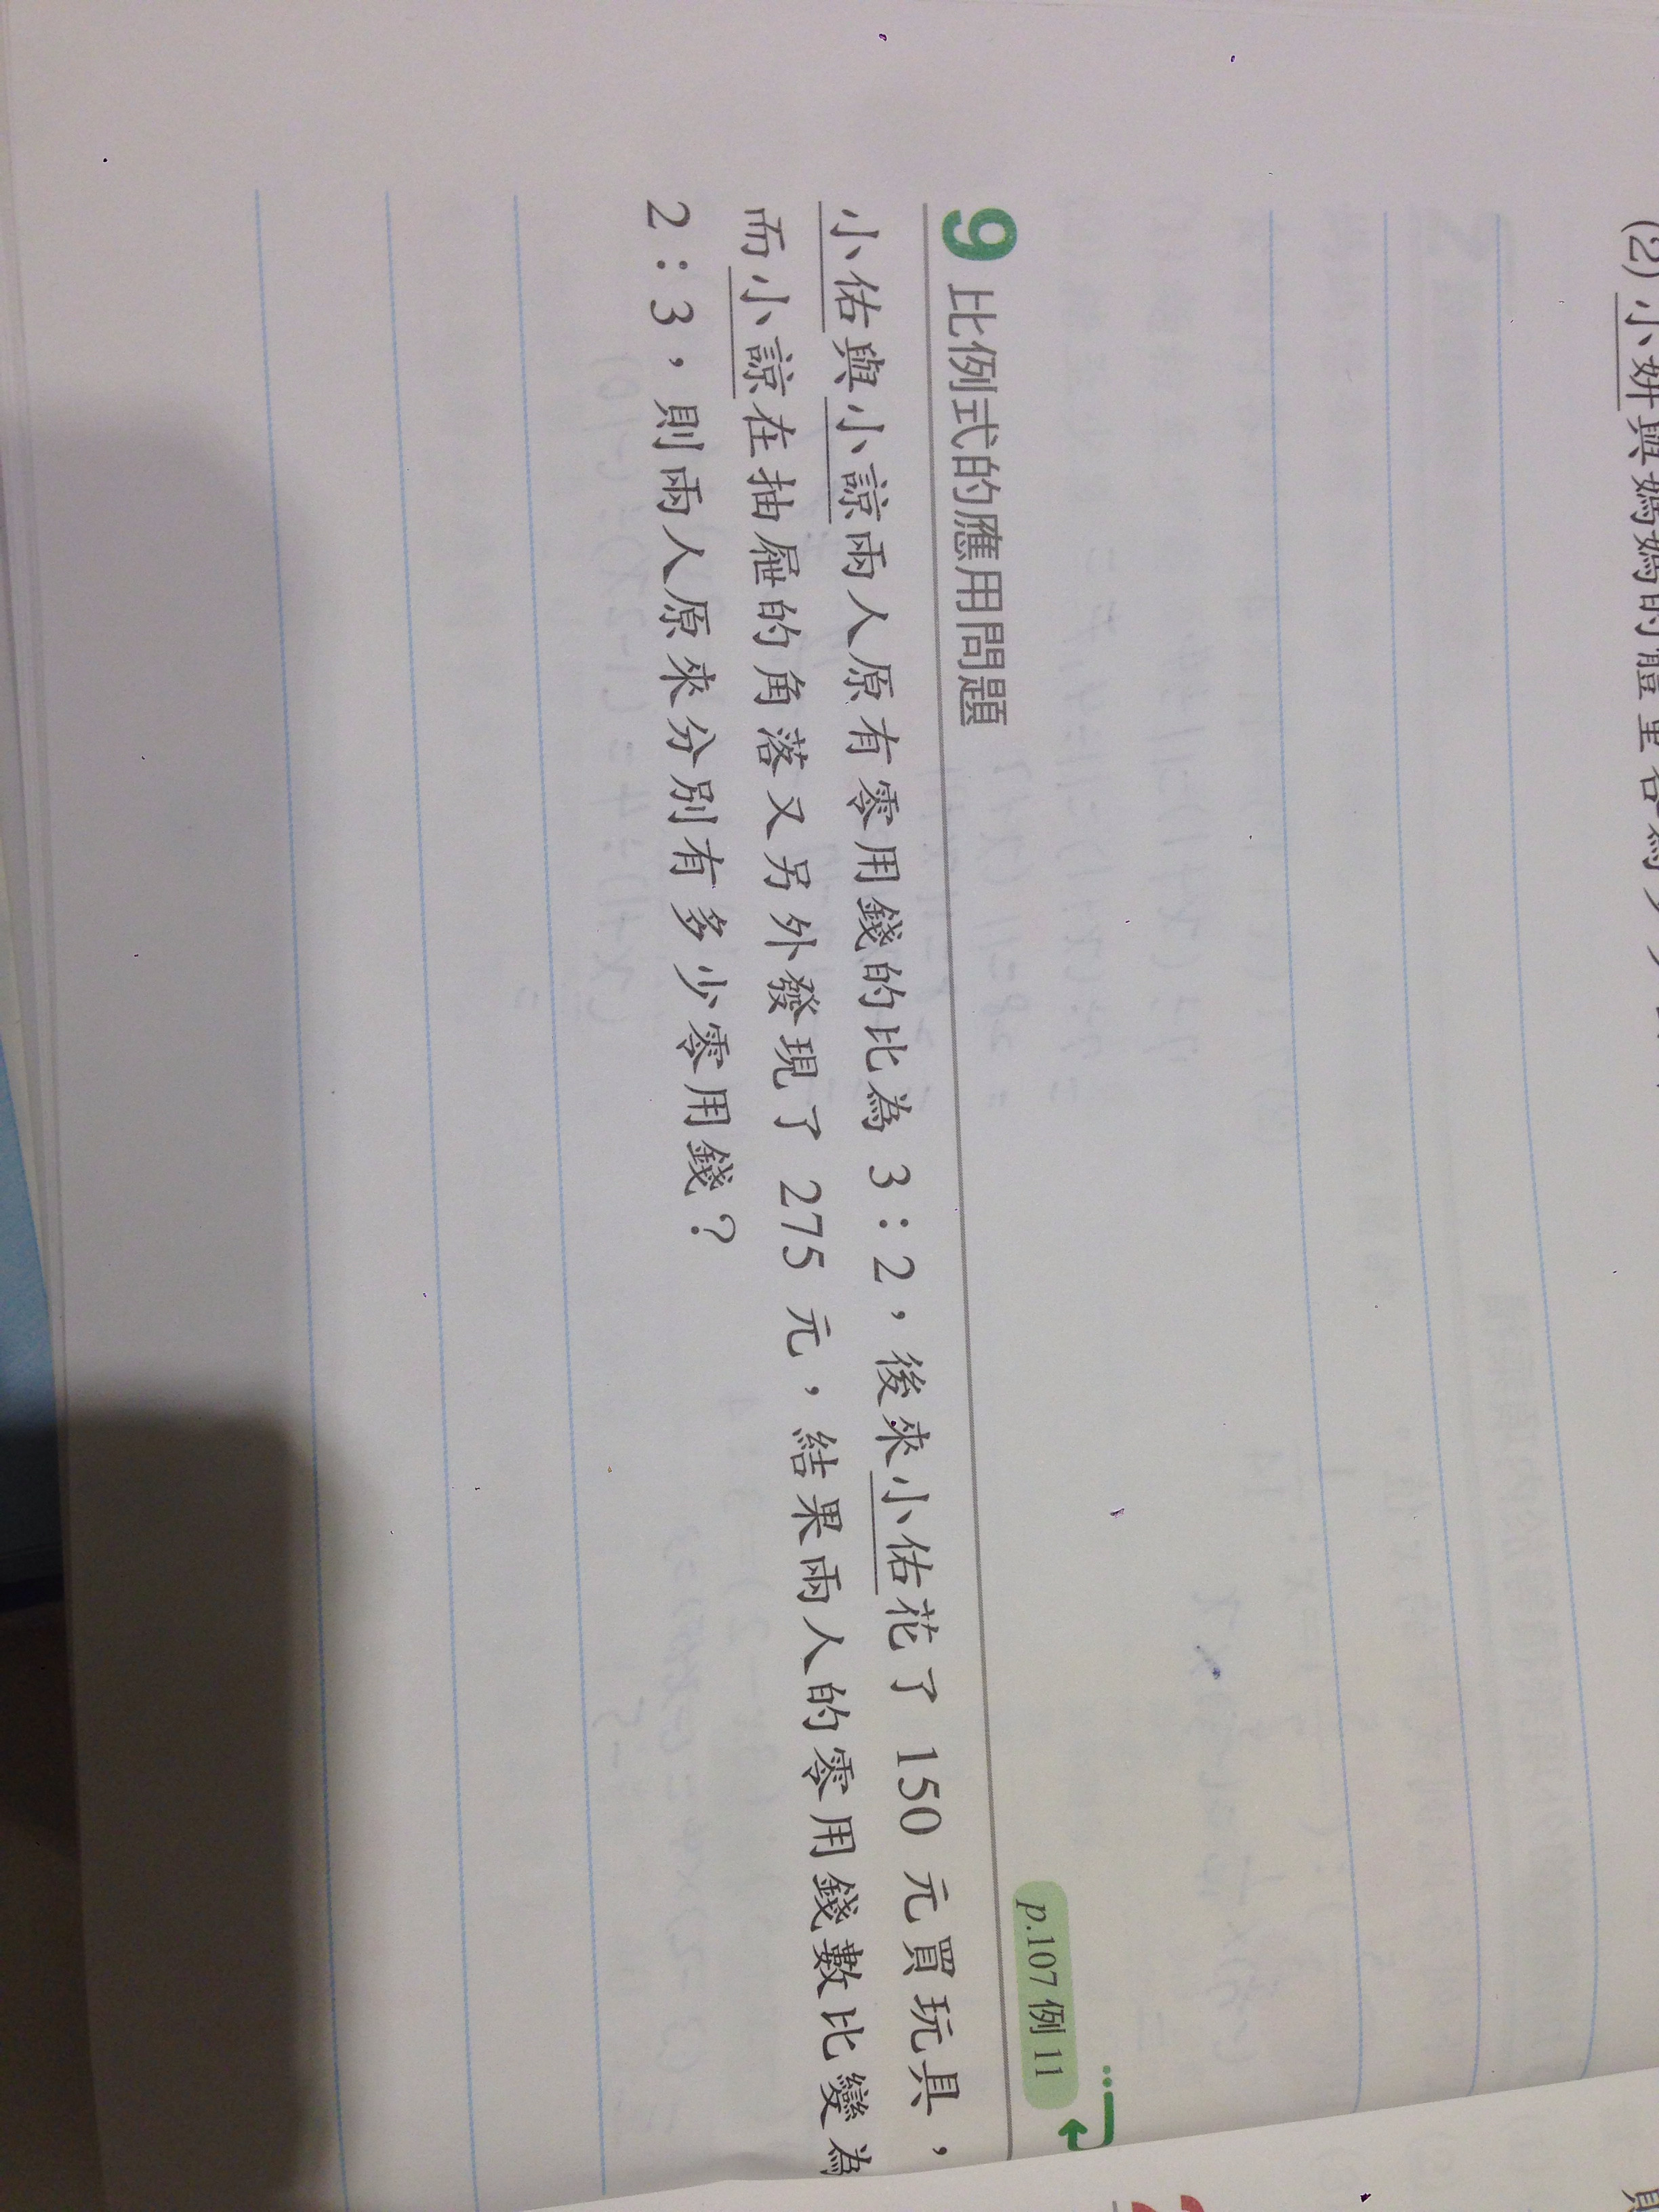 (2) 小妍與媽媽的體重各為多少公
9 比例式的應用問題
p.107 例 11
小佑與小諒兩人原有零用錢的比為 3：2，後來小佑花了 150 元買玩具，
而小諒在抽屜的角落又另外發現了 275 元，結果兩人的零用錢數比變為
2：3，則兩人原來分別有多少零用錢？